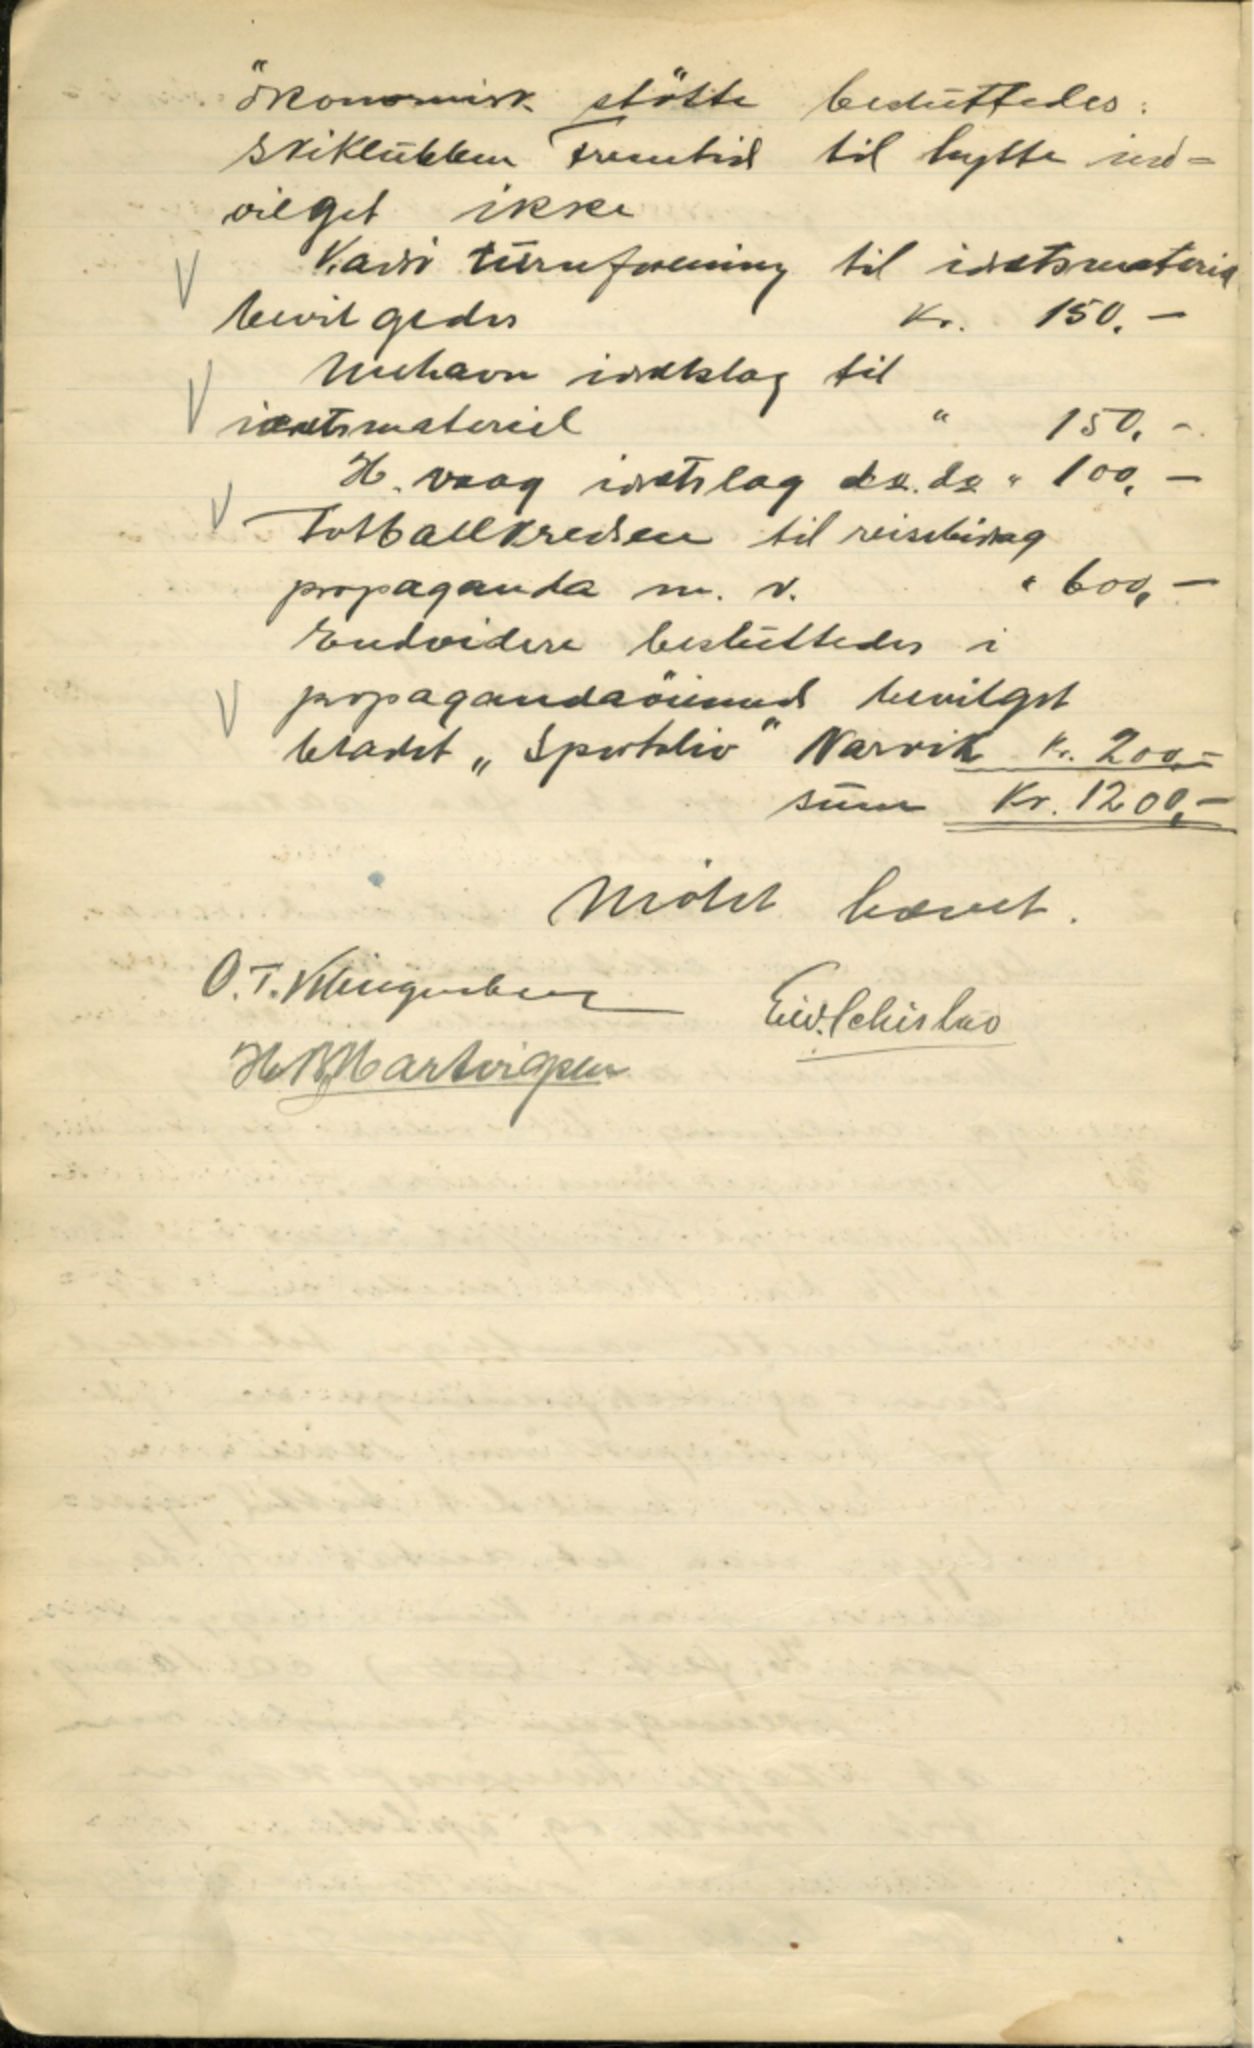 ökonomisk støtte besluttedes:
Skiklubben Fremtid til hytte ind=
vilget ikke
Vadsö turnforening til idrætsmateriel
bevilgedes Kr. 150.-
Mehavn idrætslag til
idrætsmateriel " 150.-
H. vaag idrætslag do. do " 100.-
Fotballkredsen til reisebidrag
propaganda m. v. " 600.-
Endvidere besluttedes i
propagandaöiemed bevilget
bladet „Sportsliv" Narvik Kr. 200.-
sum Kr. 1200.-
Mötet hævet.
O. T. Klingenberg
H. Hartvigsen